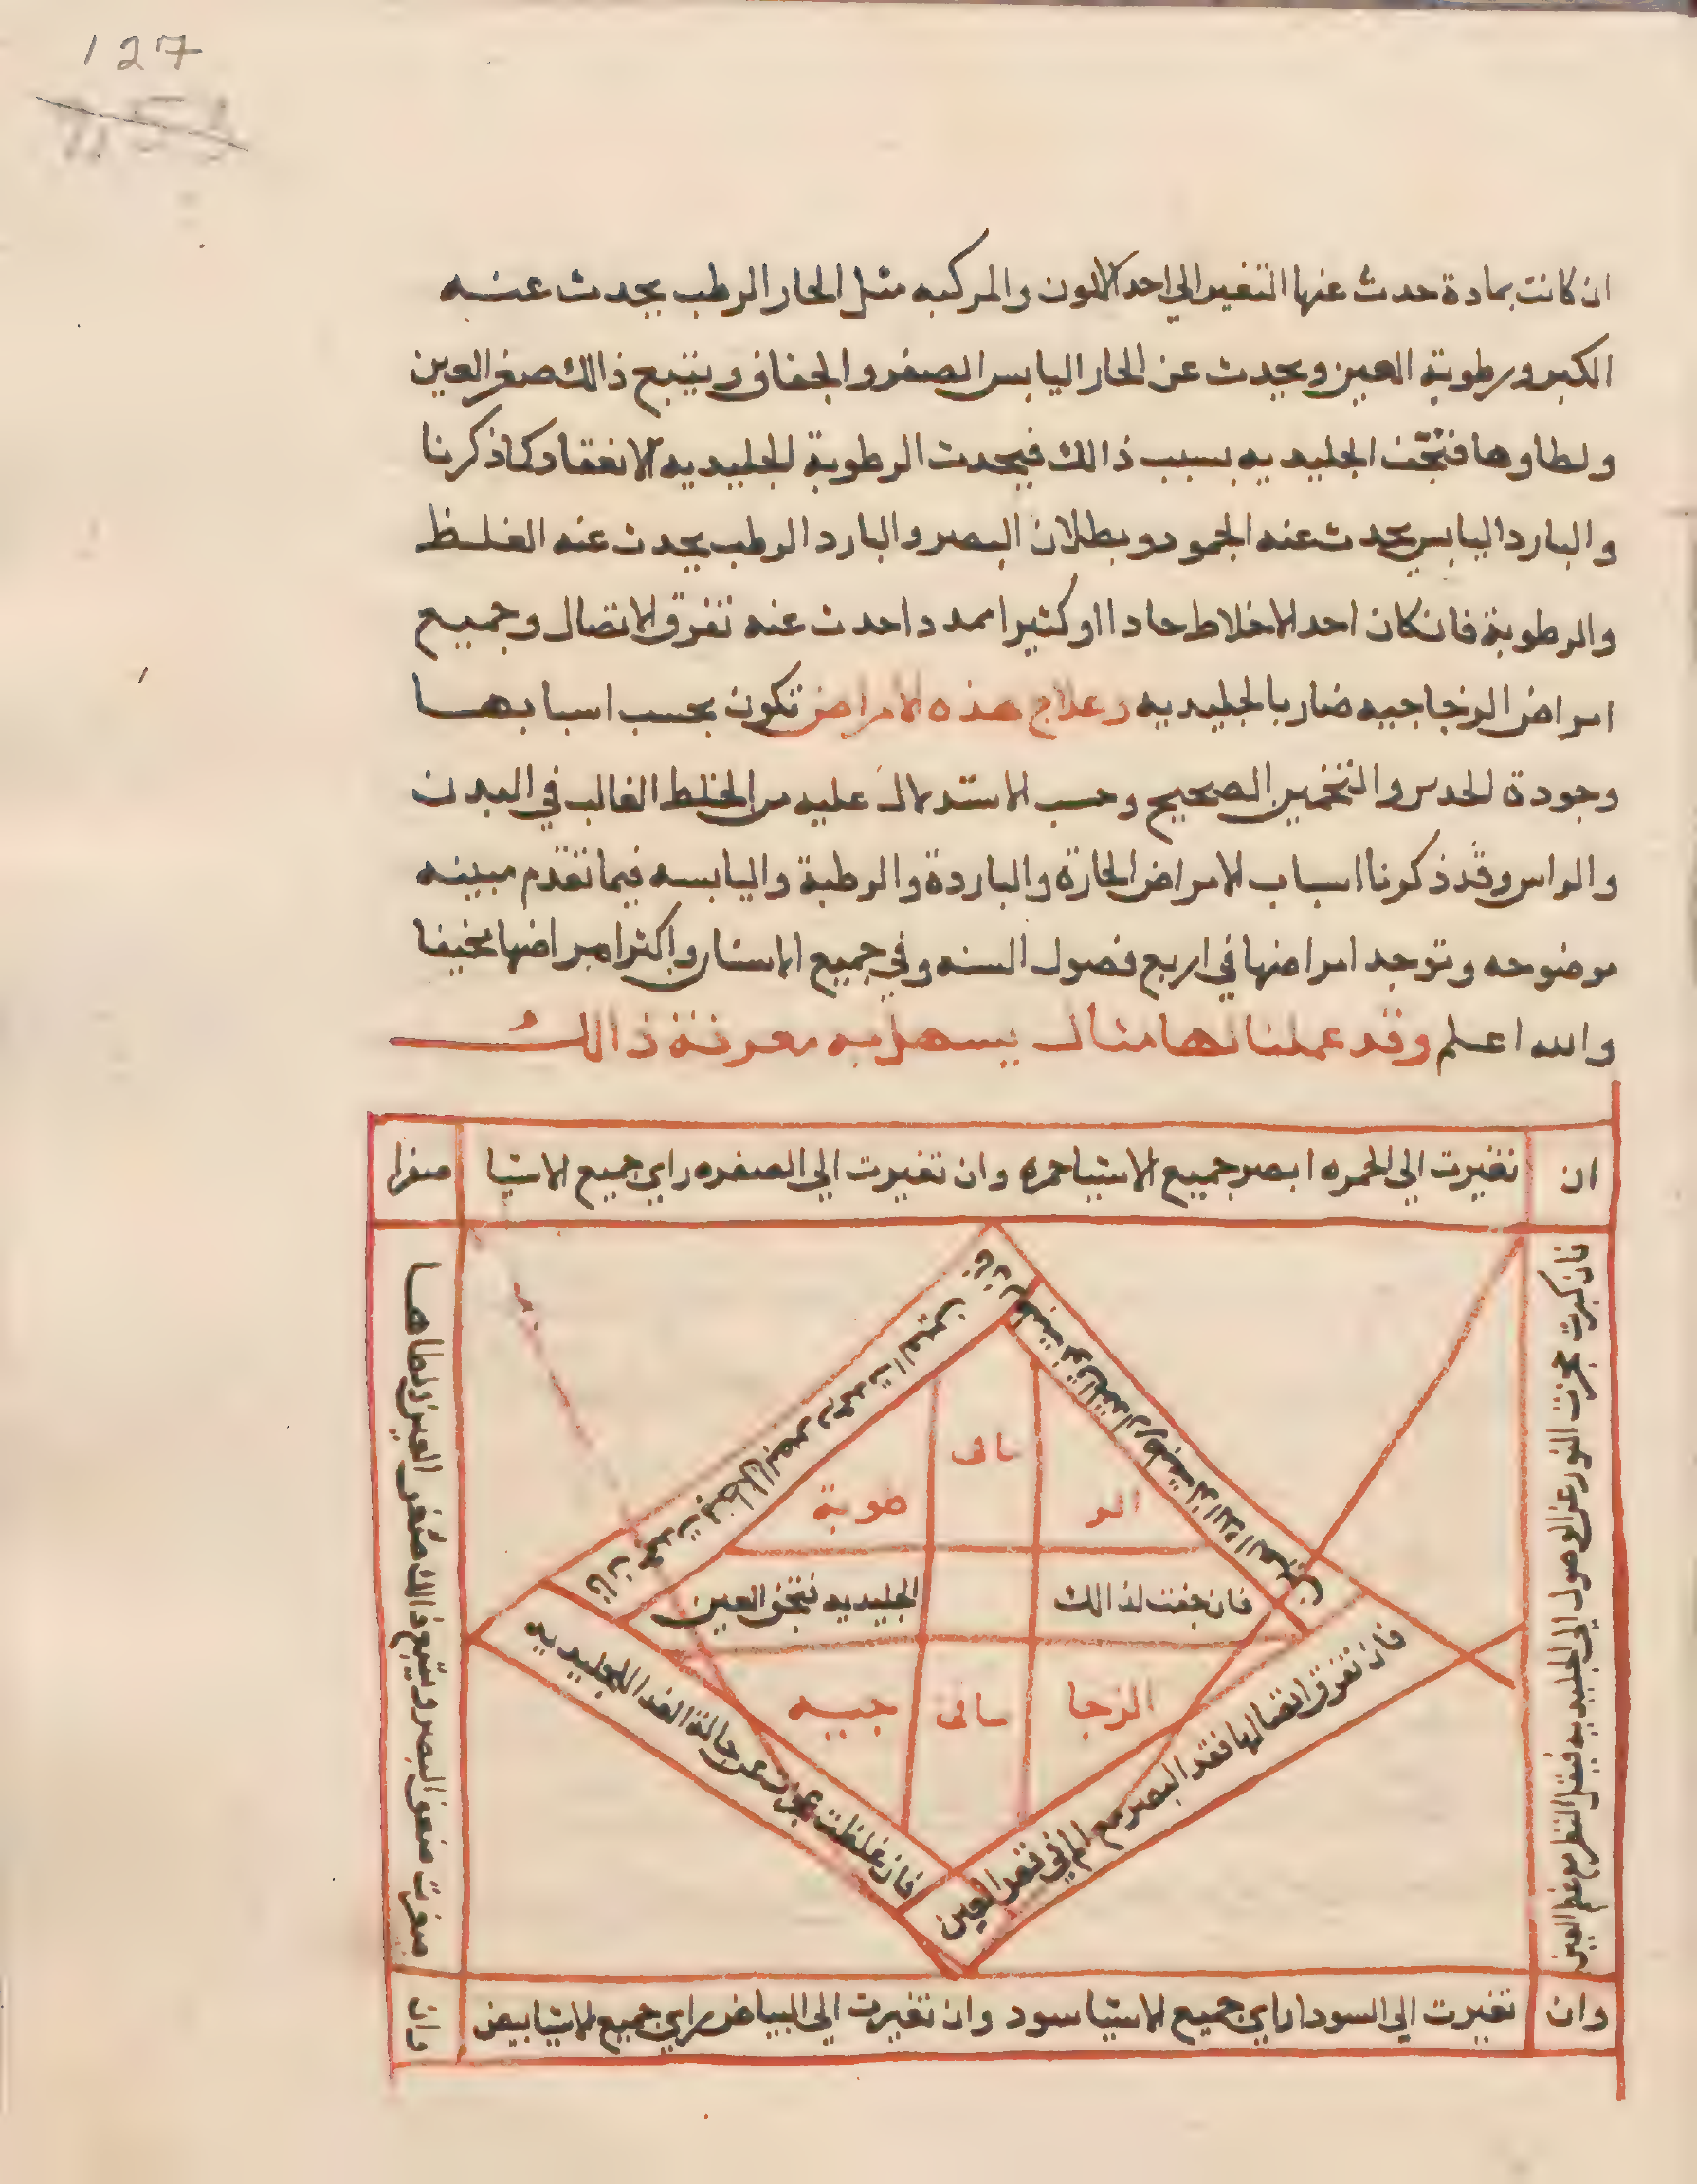 127
ان كانت بمادة حدث عنها التغير الي احد الالون والمركبه مثل الحار الرطب يحدث عنه
الكبر ورطوبة العين ويحدث عن الحار اليابس الصغر والجفاف ويتبع ذالك صغر العين
ولطاوها فتجف الجليديه بسبب ذالك فيحدث الرطوبة الجليديه الانعقاد كما ذكرنا
والبارد اليابس يحدث عنه الجمود وبطلان البصر والبارد الرطب يحدث عنه الغلظ
والرطوبة فان كان احد الاخلاط حادا او كثيرا ممددا حدث عنه تفرق الاتصال وجميع
امراض الزجاجيه ضار بالجليديه وعلاج هذه الامراض تكون بحسب اسبابها
وجودة الحدس والتخمين الصحيح وحسب الاستدلال عليه من الخلط الغالب في البدن
والراس وقد ذكرنا اسباب الامراض الحارة والباردة والرطبة واليابسه فيما تقدم مبينه
موضوحه وتوجد امراضها في اربع فصول السنه وفي جميع الاسنان واكثر امراضها مخيفا
والله اعلم وقد عملنا لها مثال يسهل به معرفة ذالك
ان
تغيرت الي الحمره ابصر جميع الاشيا حمره وان تغيرت الي الصفره راي جميع الاشيا
صفرا
فان كبرت حجزت النور عن الوصول الي الجليديه فيقل النظر مع عظم العين
صغرت ضعف البصر ويتبع ذالك صغر العين ولطاها
فان جمدت بطل البصر وجمدت العين
الر
طوبة
فان جفت لذالك
الجليديه فتجف العين
الزجا
جيه
فان تفرق اتصالها فقد البصر مع الم في قعر العين
فان غلظت عجزت عن حالة الغدا للجليديه
وان
تغيرت الي السودا راي جميع الاشيا سود وان تغيرت الي البياض راي جميع الاشيا بيض
وان